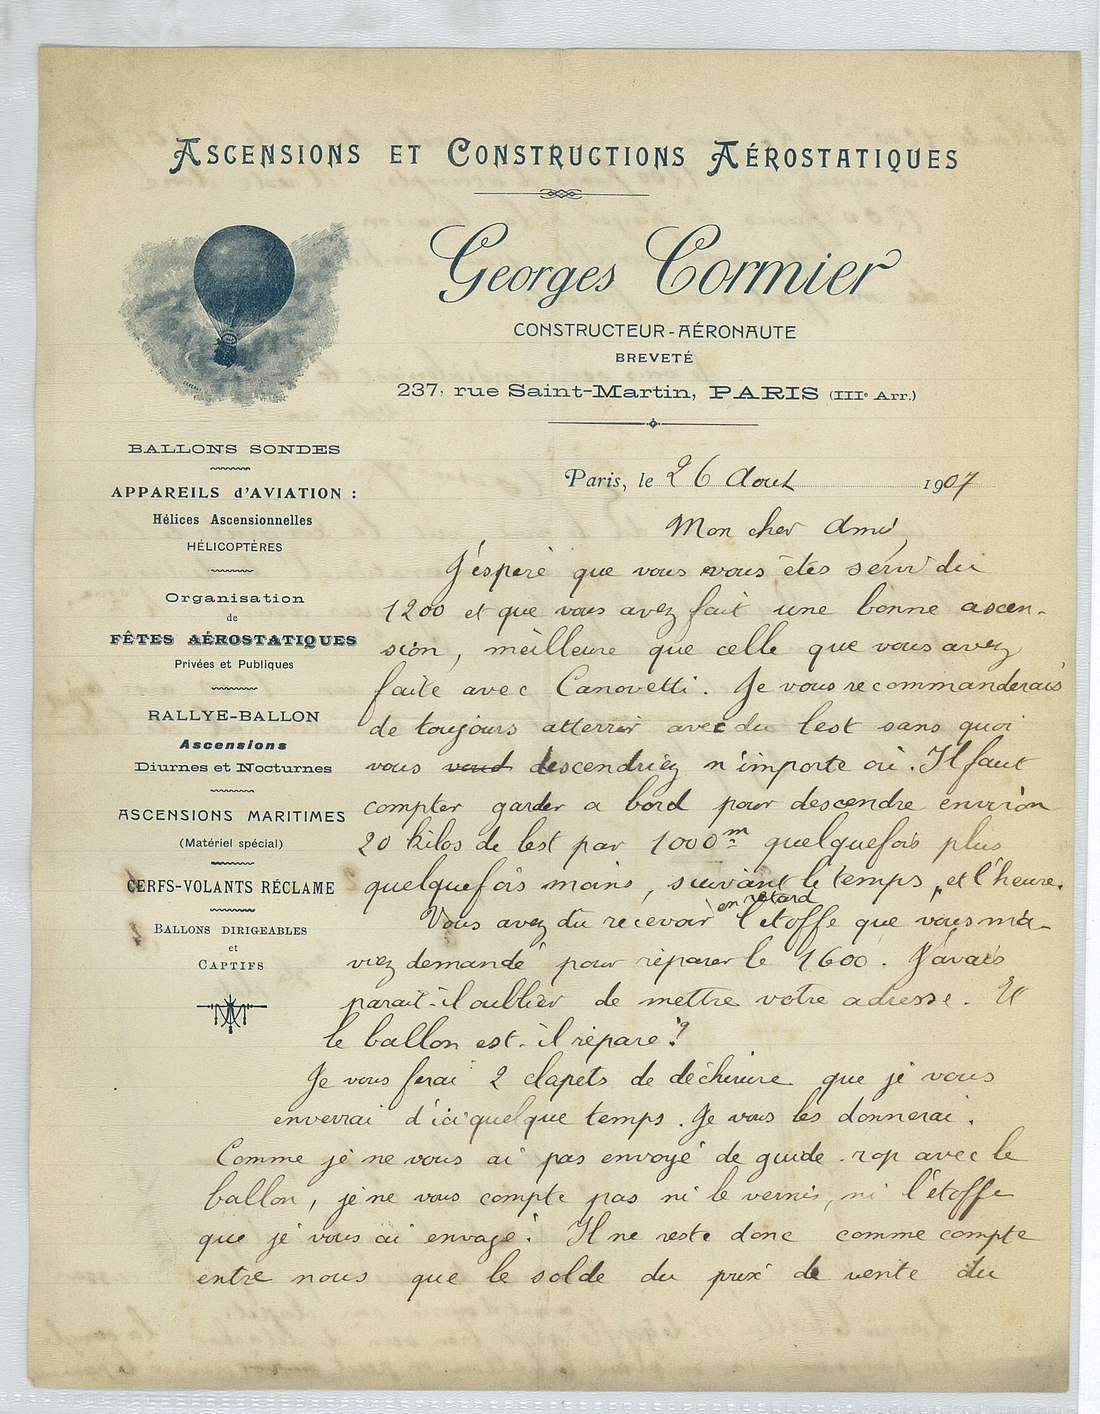 ASCENSIONS ET CONSTRUCTIONS AÉROSTATIQUES
Georges Cormier
CONSTRUCTEUR-AÉRONAUTE
BREVETÉ
237, rue Saint-Martin, PARIS (IIIe Arr.)
BALLONS SONDES
APPAREILS d'AVIATION :
Hélices Ascensionnelles
HÉLICOPTÈRES
Organisation
de
FÊTES AÉROSTATIQUES
Privées et Publiques
RALLYE-BALLON
Ascensions
Diurnes et Nocturnes
ASCENSIONS MARITIMES
(Matériel spécial)
CERFS-VOLANTS RÉCLAME
BALLONS DIRIGEABLES
et
CAPTIFS
Paris, le 26 Aout 1907
Mon cher Ami,
J'espère que vous vous êtes servi du
1200 et que vous avez fait une bonne ascen-
sion, meilleure que celle que vous avez
faite avec Canovetti. Je vous recommanderais
de toujours atterrir avec du lest sans quoi
vous descendriez n'importe où. Il faut
compter garder a bord pour descendre environ
20 kilos de lest par 1000m quelquefois plus
quelquefois moins, suivant le temps, et l'heure.
Vous avez du recevoir en retard l'étoffe que vous m'a-
viez demandé pour réparer le 1600. J'avais
parait-il oublier de mettre votre adresse. Et
le ballon est-il réparé ?
Je vous ferai 2 clapets de déchirure que je vous
enverrai d'ici quelque temps. Je vous les donnerai.
Comme je ne vous ai pas envoyé de guide-rop avec le
ballon, je ne vous compte pas ni le vernis, ni l'étoffe
que je vous ai envoyé. Il ne reste donc comme compte
entre nous que le solde du prix de vente du